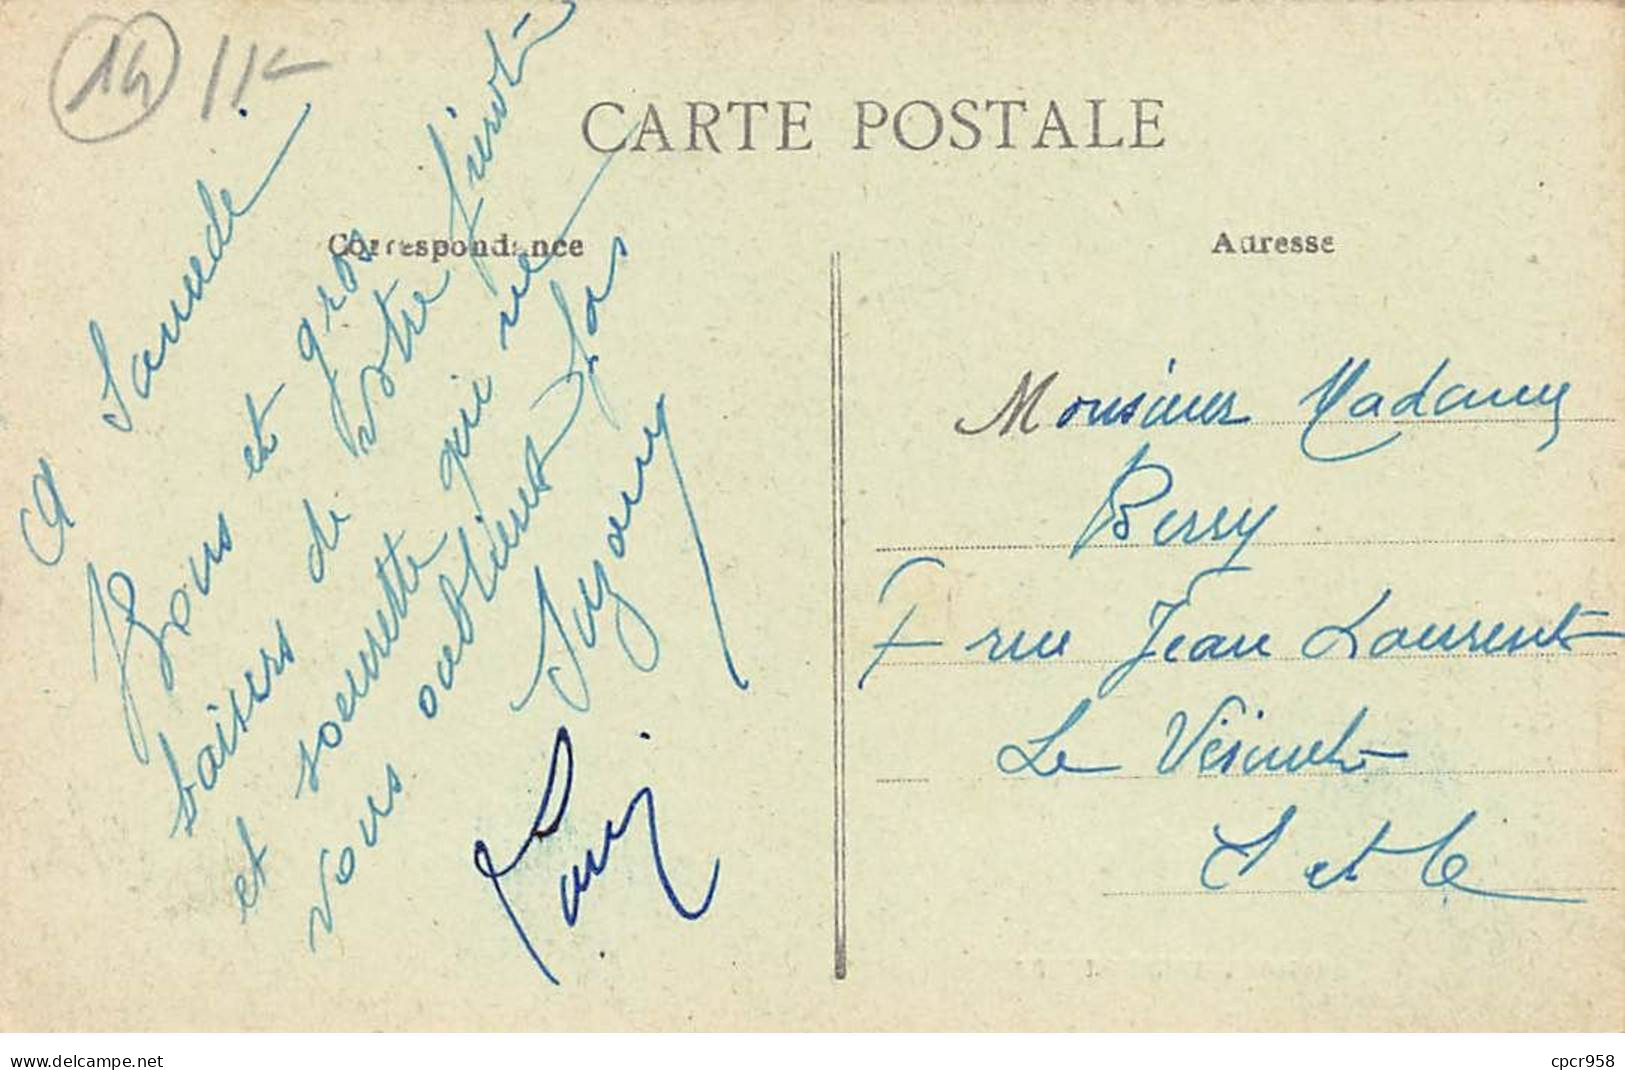 14
CARTE POSTALE
Correspondance
Adresse
A Samedi.
Bons et gros
baisers de votre
et soeurette qui ne
vous oublient pas
Suzany
Monsieur Madame
Berry
7 rue Jean Laurent
Le Vésinet
S et O
delcampe.net
cpcr958